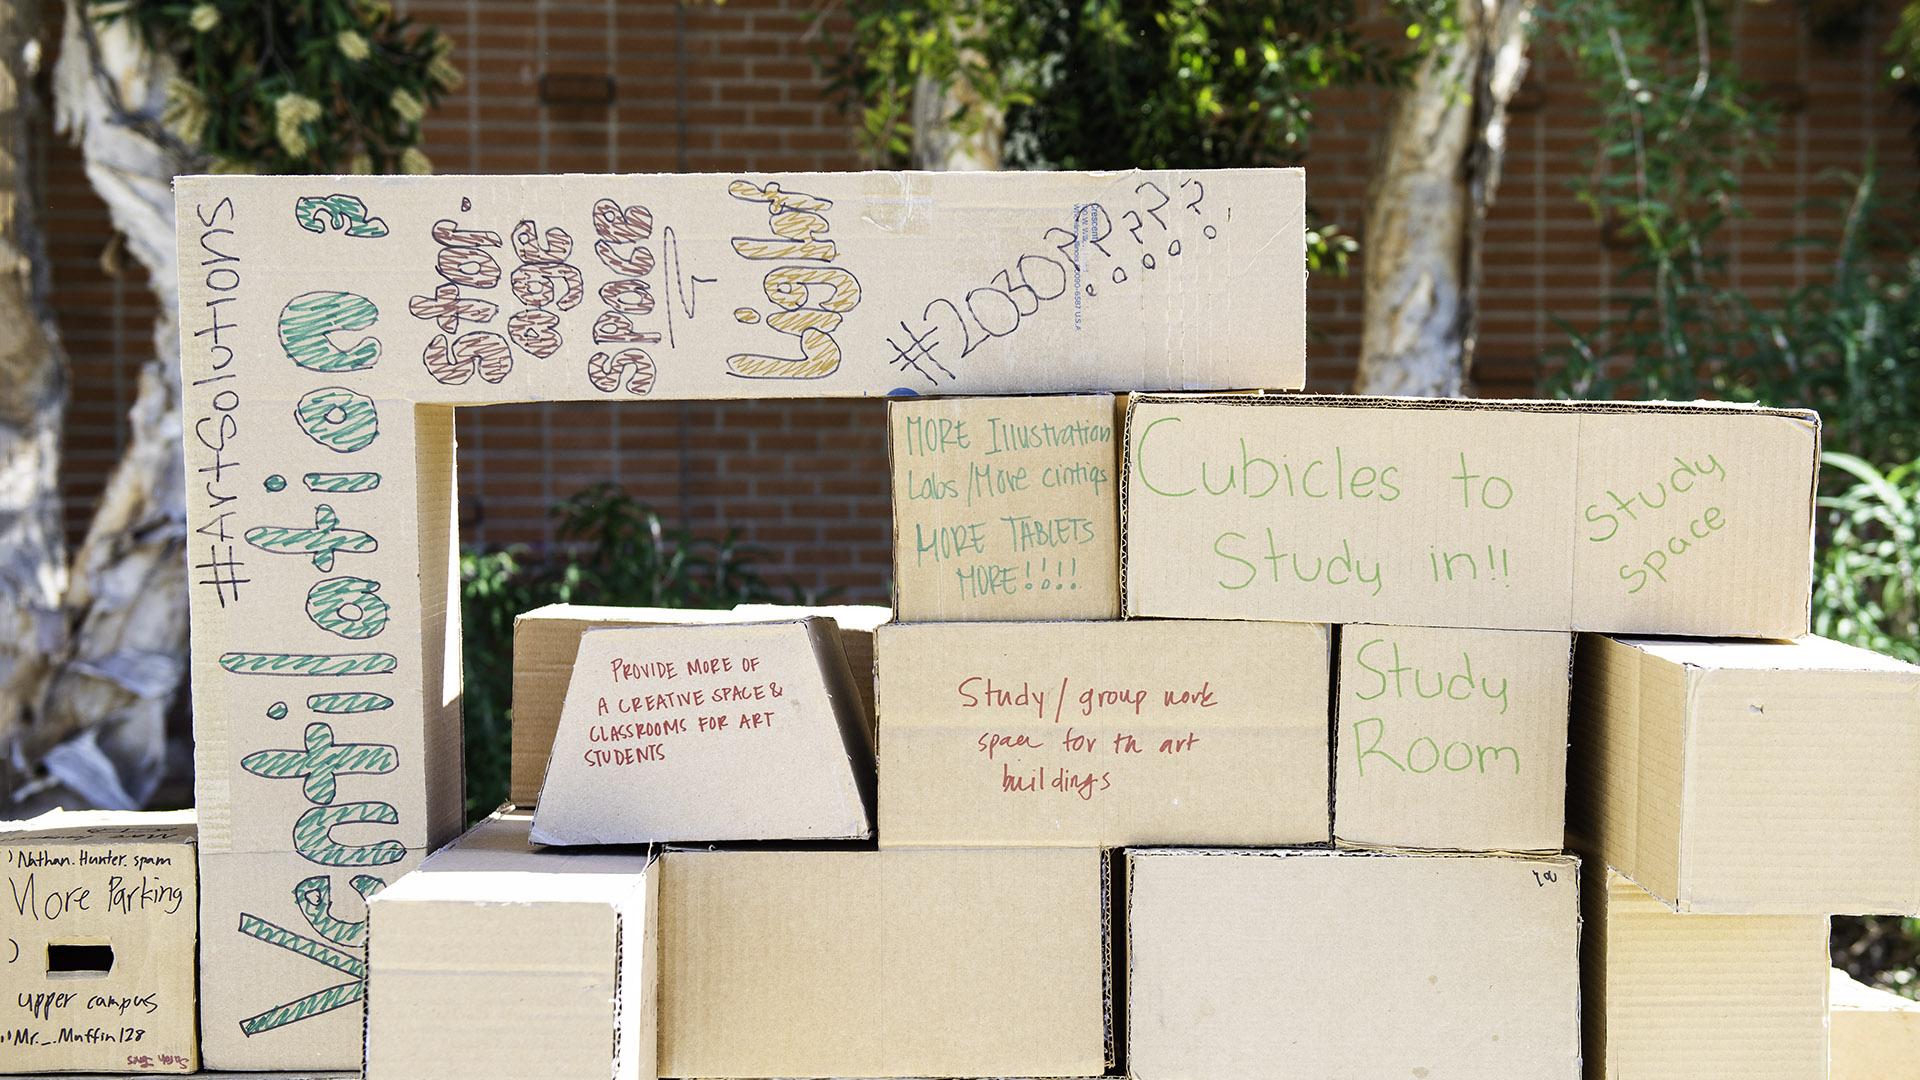 #ArtSolutions
Ventilation 3
Stor.
age
space
Light
#2030??
MORE Illustration
Labs/More cintiqs
MORE TABLETS
MORE!!!!
Cubicles to
Study in!!
Study
space
PROVIDE MORE OF
A CREATIVE SPACE &
CLASSROOMS FOR ART
STUDENTS
Study/group work
space for the art
buildings
Study
Room
Nathan.Hunter.spam
More Parking
upper campus
Mr._.Muffin128
you